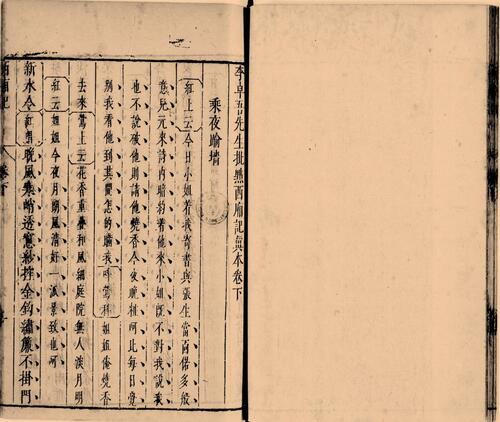 李卓吾先生批點西廂記眞本卷下
乘夜踰墻
紅上云今日小姐着我寄書與張生當面偌多般
意兒元來詩内暗約着他來小姐既不對我說我
也不說破他則請他燒香今夜晚粧呵比每日覺
別我看他到其間怎的瞞我呌鶯科姐姐俺燒香
去來鶯上云花香重疊和風細庭院無人淡月明
紅云姐姐今夜月朗風清好一派景致也呵
新水令紅唱晚風寒峭透窻紗控金鈎繡簾不掛門
西廂記 卷下